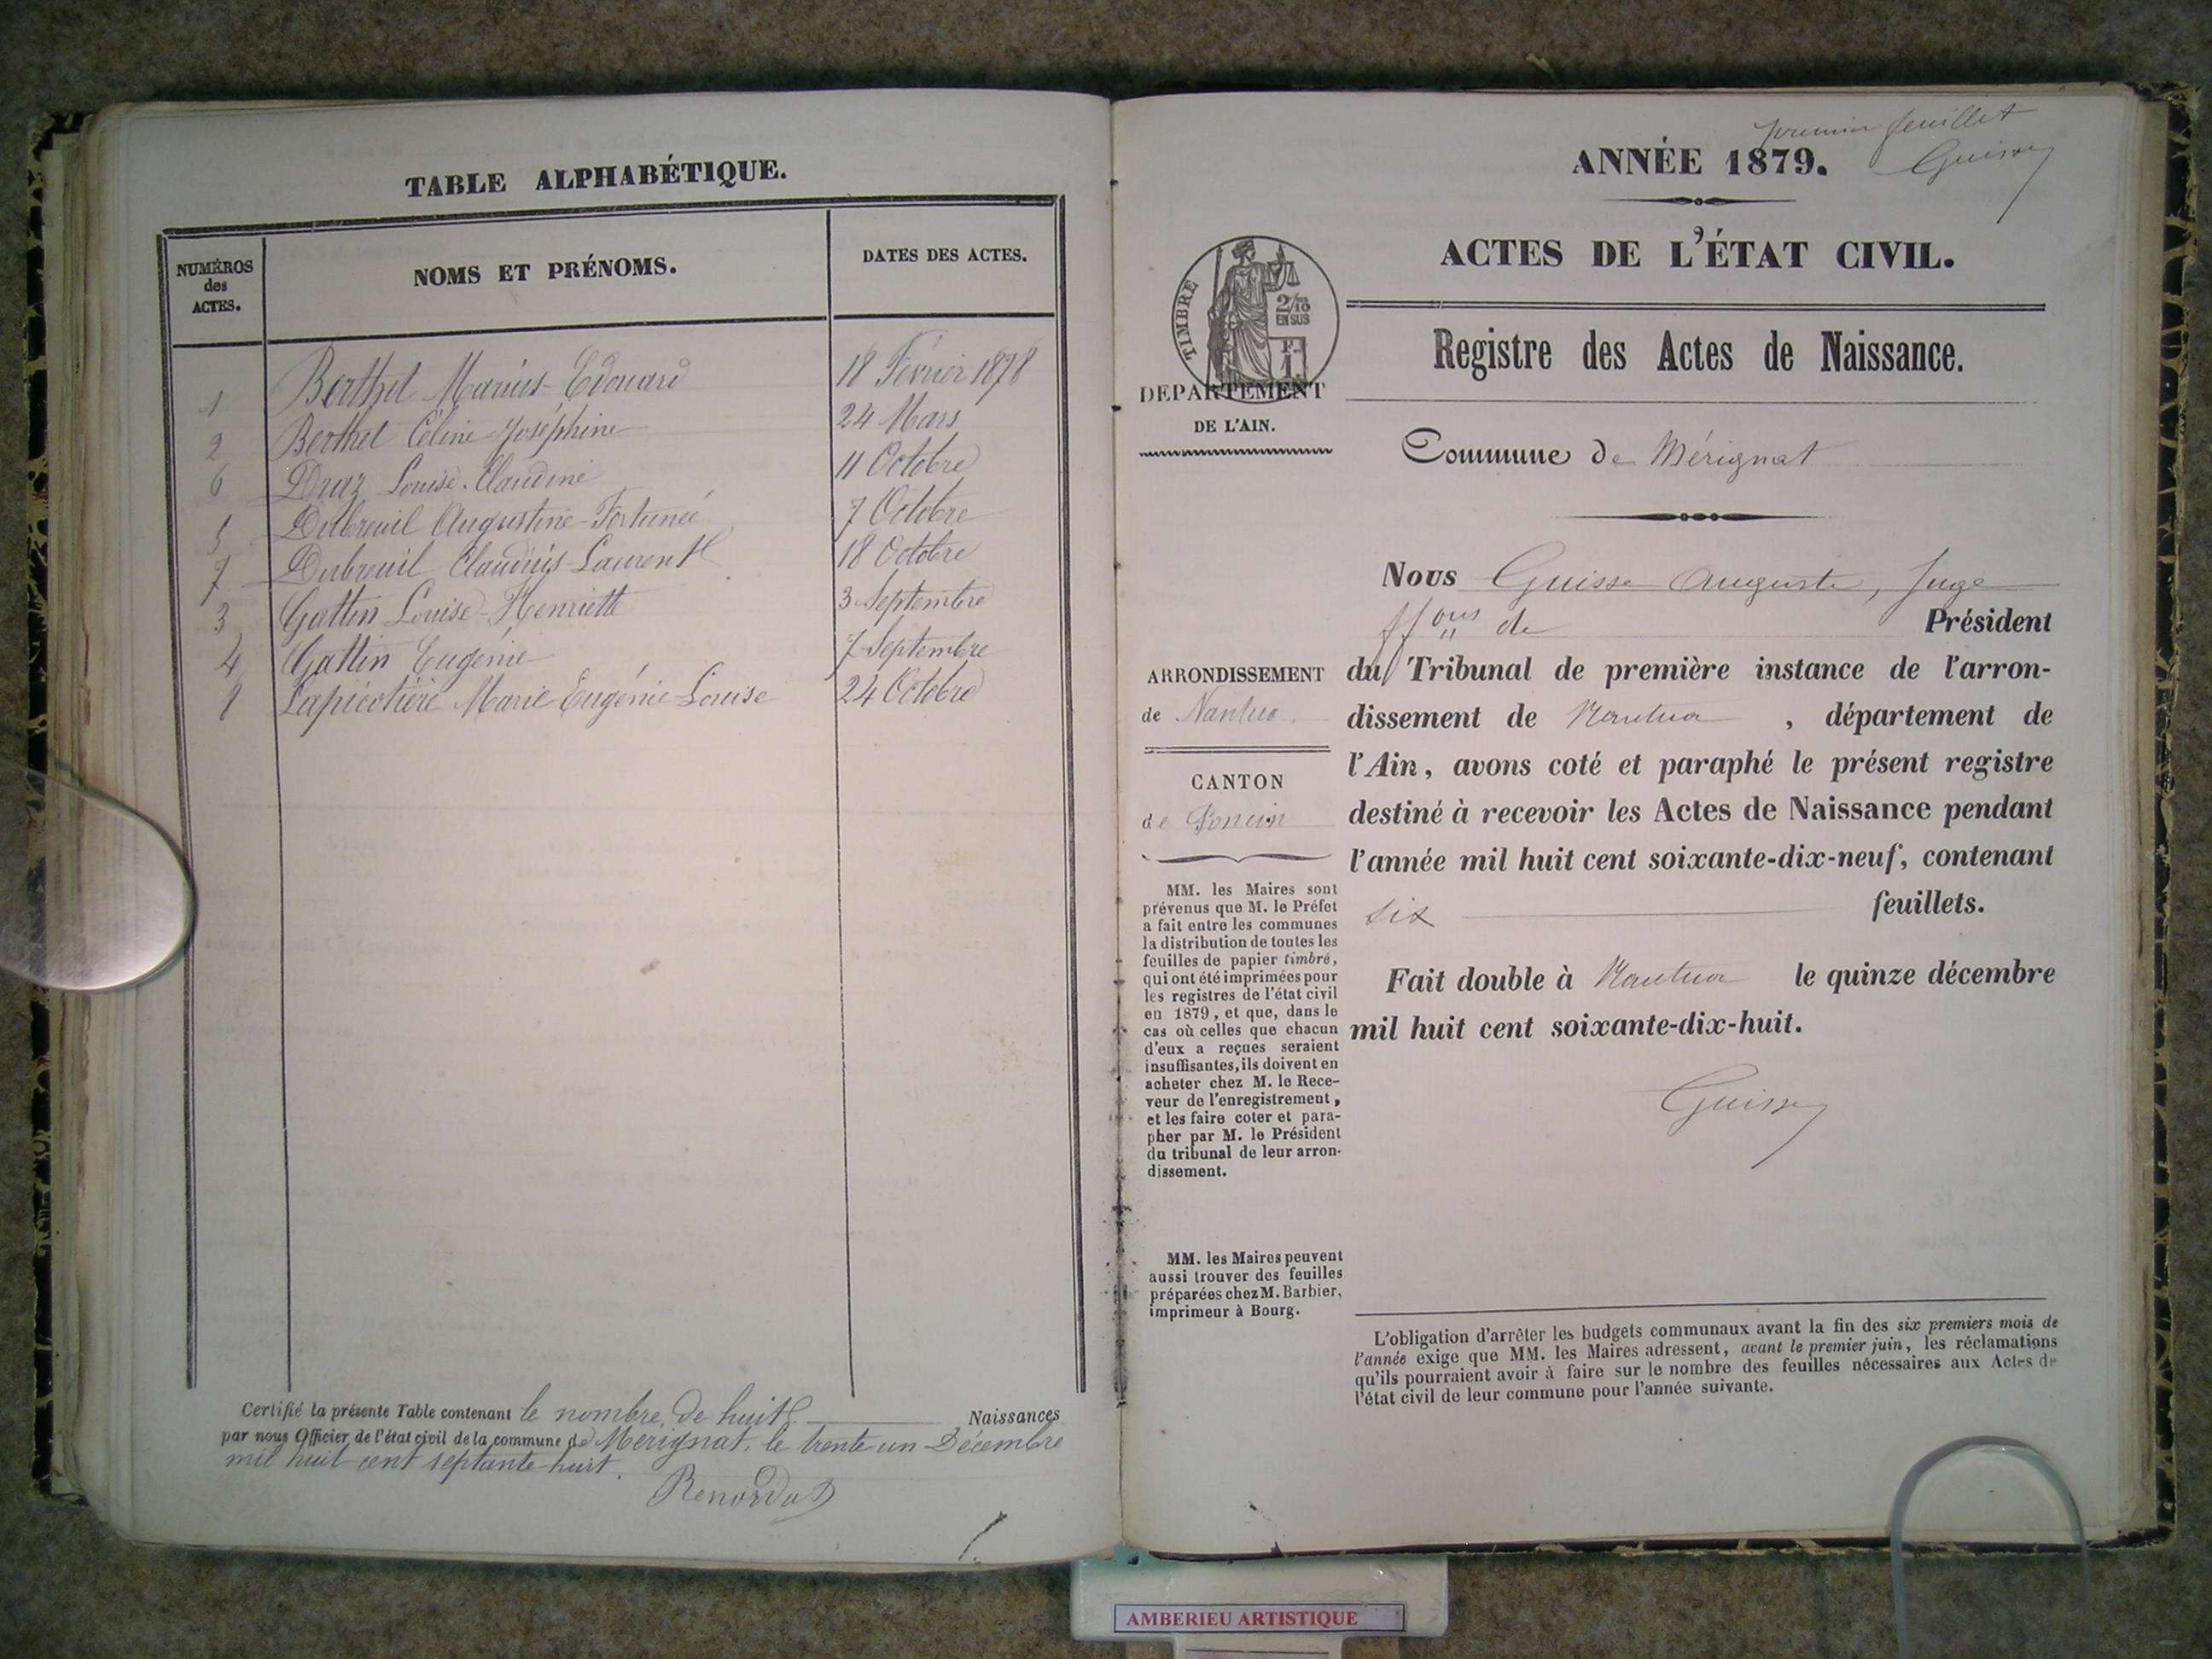 TABLE ALPHABÉTIQUE.
NUMÉROS des ACTES.
NOMS ET PRÉNOMS.
DATES DES ACTES.
1 Berthet Marius-Edouard 18 Février 1878
2 Berthet Céline-Joséphine 24 Mars
6 Druz Louise-Claudine 11 Octobre
5 Dubreuil Augustine-Fortunée 7 Octobre
7 Dubreuil Claudius-Laurent 18 Octobre
3 Gattin Louise-Henriette 3 Septembre
4 Gattin Eugénie 7 Septembre
8 Lapicotière Marie Eugénie-Louise 24 Octobre
Certifié la présente Table contenant le nombre de huit Naissances
par nous Officier de l'état civil de la commune de Mérignat, le trente un Décembre
mil huit cent septante-huit.
premier feuillet
Guisse
ANNÉE 1879.
ACTES DE L'ÉTAT CIVIL.
TIMBRE
2/10
EN SUS
F.
1
DEPARTEMENT
DE L'AIN.
Registre des Actes de Naissance.
Commune de Mérignat
Nous Guisse Auguste, Juge
ffons de Président
du Tribunal de première instance de l'arron-
dissement de Nantua, département de
l'Ain, avons coté et paraphé le présent registre
destiné à recevoir les Actes de Naissance pendant
l'année mil huit cent soixante-dix-neuf, contenant
six feuillets.
Fait double à Nantua le quinze décembre
mil huit cent soixante-dix-huit.
Guisse
ARRONDISSEMENT
de Nantua.
CANTON
de Poncin
MM. les Maires sont
prévenus que M. le Préfet
a fait entre les communes
la distribution de toutes les
feuilles de papier timbré,
qui ont été imprimées pour
les registres de l'état civil
en 1879, et que, dans le
cas où celles que chacun
d'eux a reçues seraient
insuffisantes, ils doivent en
acheter chez M. le Rece-
veur de l'enregistrement,
et les faire coter et para-
pher par M. le Président
du tribunal de leur arron-
dissement.
MM. les Maires peuvent
aussi trouver des feuilles
préparées chez M. Barbier,
imprimeur à Bourg.
L'obligation d'arrêter les budgets communaux avant la fin des six premiers mois de
l'année exige que MM. les Maires adressent, avant le premier juin, les réclamations
qu'ils pourraient avoir à faire sur le nombre des feuilles nécessaires aux Actes de
l'état civil de leur commune pour l'année suivante.
AMBERIEU ARTISTIQUE